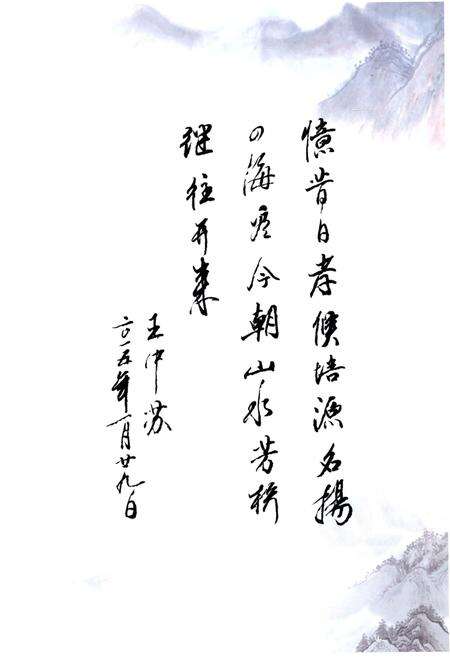 憶昔日孝侯培源名揚
四海意今朝山水芳桥
继往开来
王中苏
二〇一五年一月廿九日